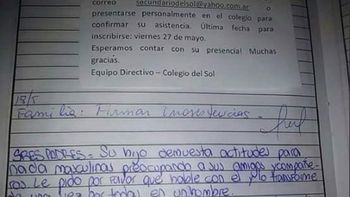 correo secundariodelsol@yahoo.com.ar o
presentarse personalmente en el colegio para
confirmar su asistencia. Última fecha para
inscribirse: viernes 27 de mayo.
Esperamos contar con su presencia! Muchas
gracias.
Equipo Directivo – Colegio del Sol
13/5
Familia: Firmar Inasistencias
SRES PADRES = Su hijo demuesta actitudes para
nada masculinas preocupando a sus amigos y compañe-
ros. Le pido por favor que hable con el y lo transforme
de una vez por todas en un hombre.